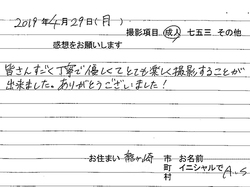 2019年4月29日(月)
撮影項目 成人 七五三 その他
感想をお願いします
皆さんすごく丁寧で優しくてとても楽しく撮影することが
出来ました。ありがとうございました!
お住まい 龍ヶ崎 市 町 村 お名前 イニシャルで A.S